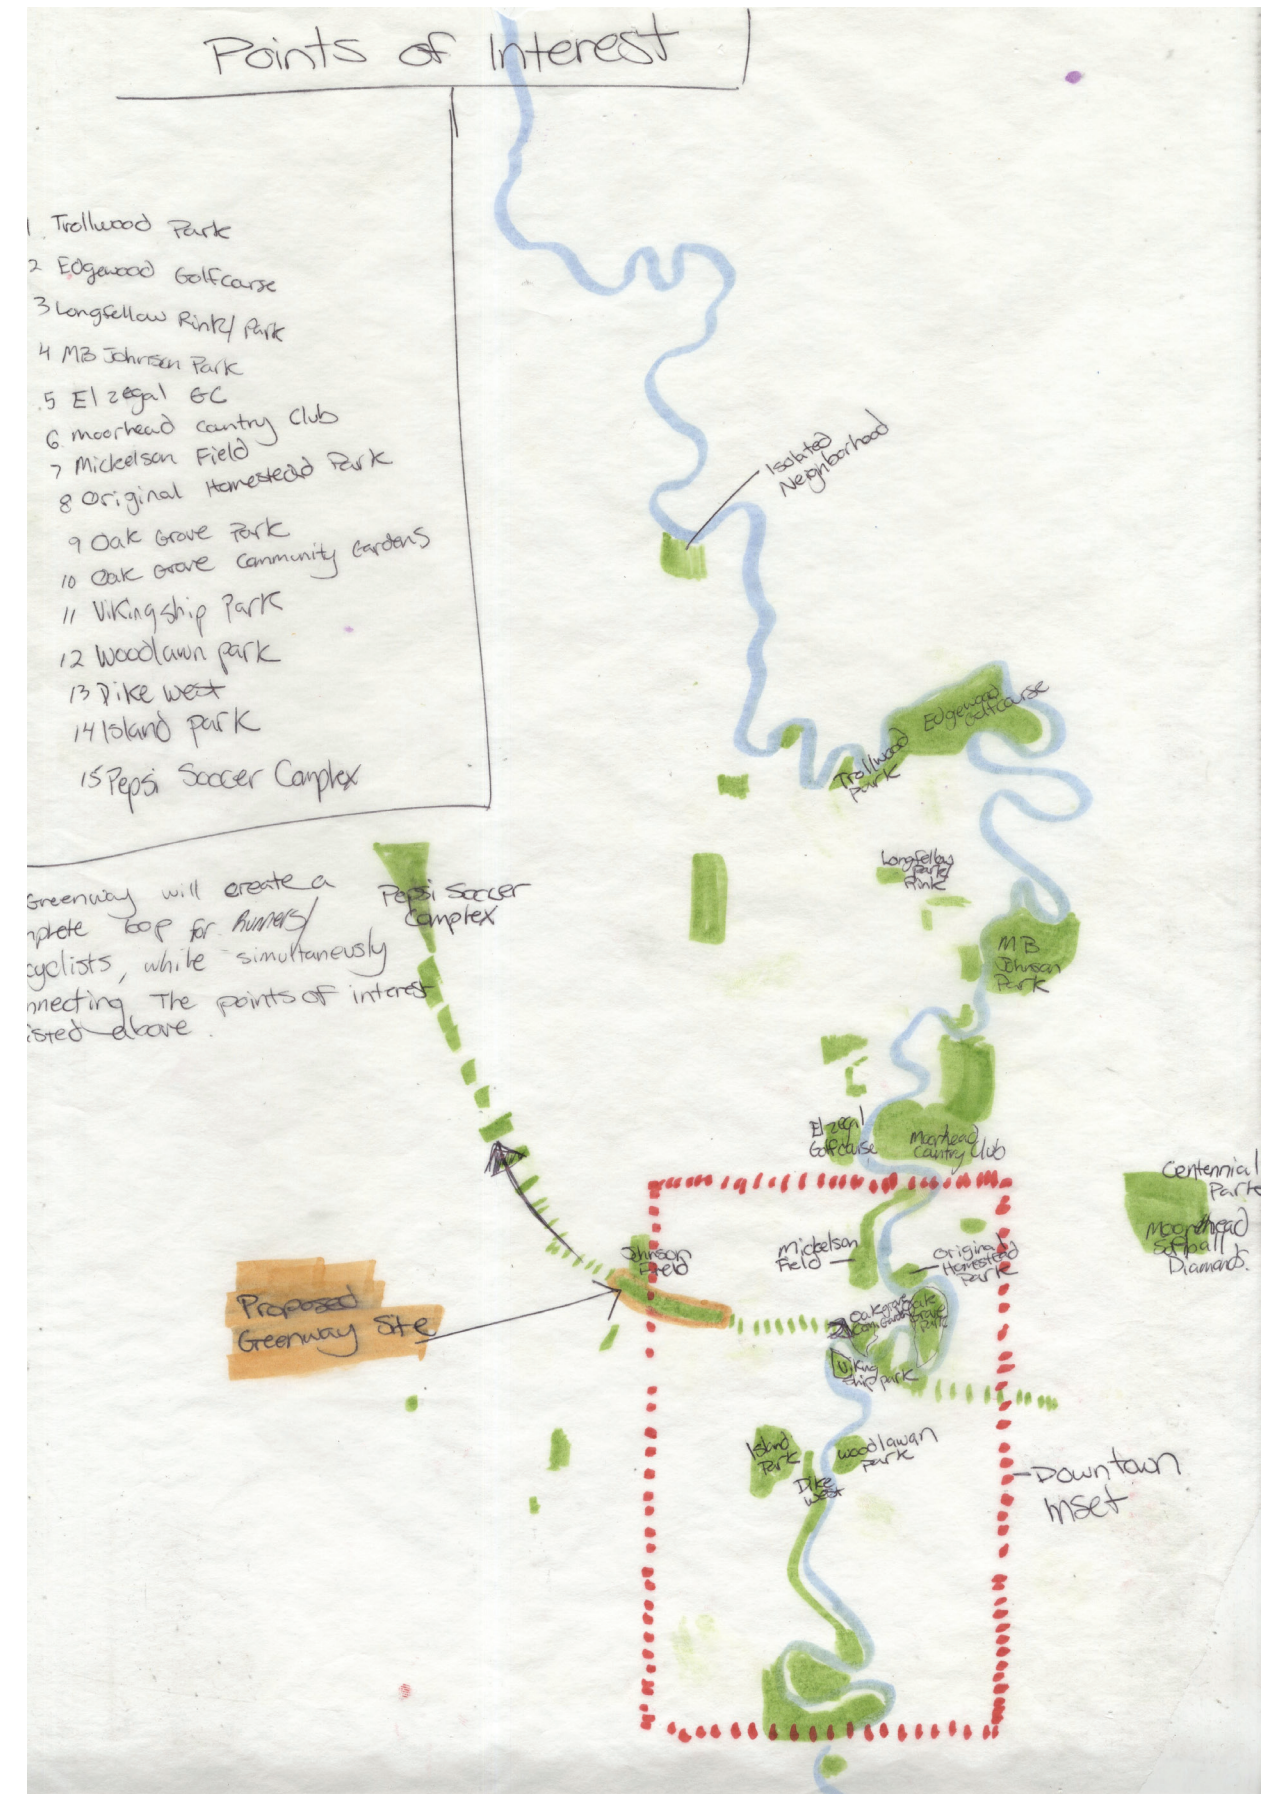 Points of Interest
1. Trollwood Park
2 Edgewood Golfcourse
3 Longfellow Rink/ Park
4 MB Johnson Park
5 El zegal GC
6 Moorhead Country Club
7 Mickelson Field
8 Original Homestead Park
9 Oak Grove Park
10 Oak Grove Community Gardens
11 Vikingship Park
12 Woodlawn park
13 Dike west
14 Island park
15 Pepsi Soccer Complex
Greenway will create a
mplete loop for Runners/
cyclists, while simultaneously
nnecting The points of interest
isted above.
Isolated
Neighborhood
Edgewood
Golfcourse
Trollwood
Park
Longfellow
Park/
Rink
MB
Johnson
Park
Pepsi Soccer
Complex
El zegal
Golfcourse
Moorhead
Country Club
Centennial
Park
Moorhead
Softball
Diamonds.
Johnson
Field
Mickelson
Field
Original
Homestead
Park
Proposed
Greenway Site
Oakgrove
Oak
Grove
Park
Viking
Ship park
Island
Park
Woodlawan
Park
Dike
West
Downtown
inset